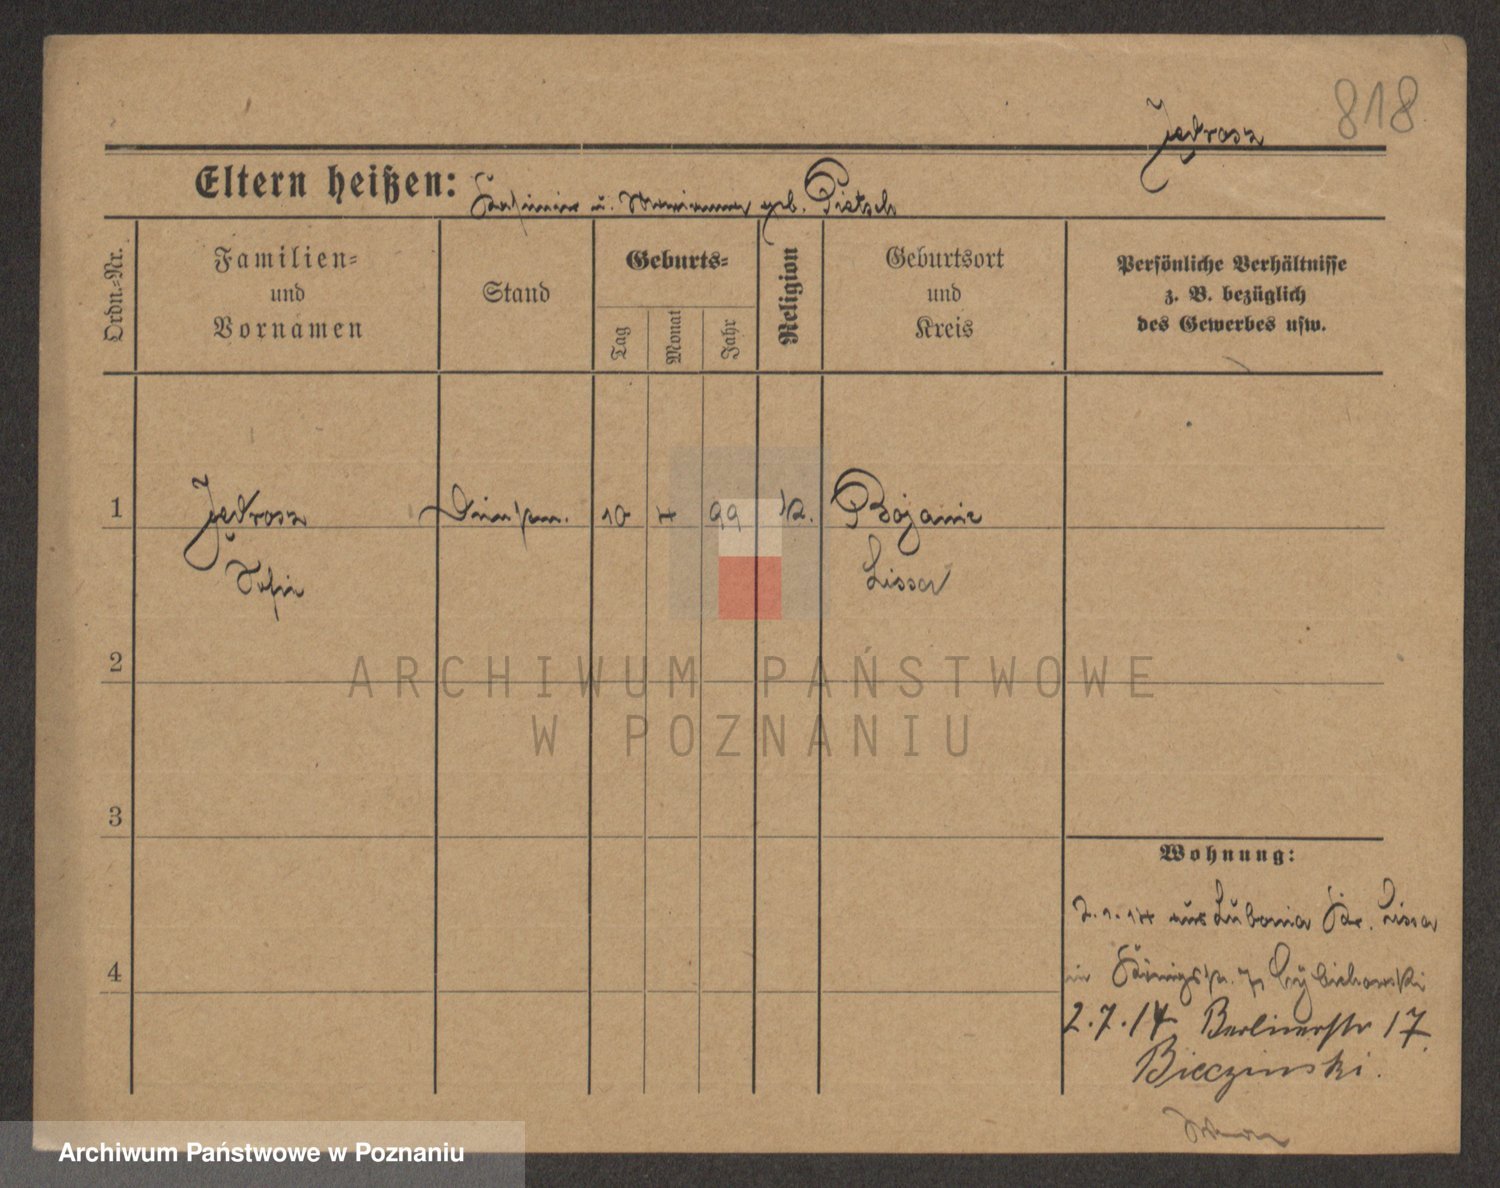 818
Jędrosz
Eltern heißen: Kasimir u. Marianna geb. Pietsch
Ordn.-Nr.
Familien-
und
Vornamen
Stand
Geburts-
Tag
Monat
Jahr
Religion
Geburtsort
und
Kreis
Persönliche Verhältnisse
z. B. bezüglich
des Gewerbes usw.
1
Jędrosz
Sofie
10
4
99
Bojanic
Lissa
2
3
4
Wohnung:
2.1.14 aus Lubonia Kr. Lissa
in Königspl. 7
2.7.14 Berlinerstr 17
Bieczinski.
ARCHIWUM PAŃSTWOWE
W POZNANIU
Archiwum Państwowe w Poznaniu